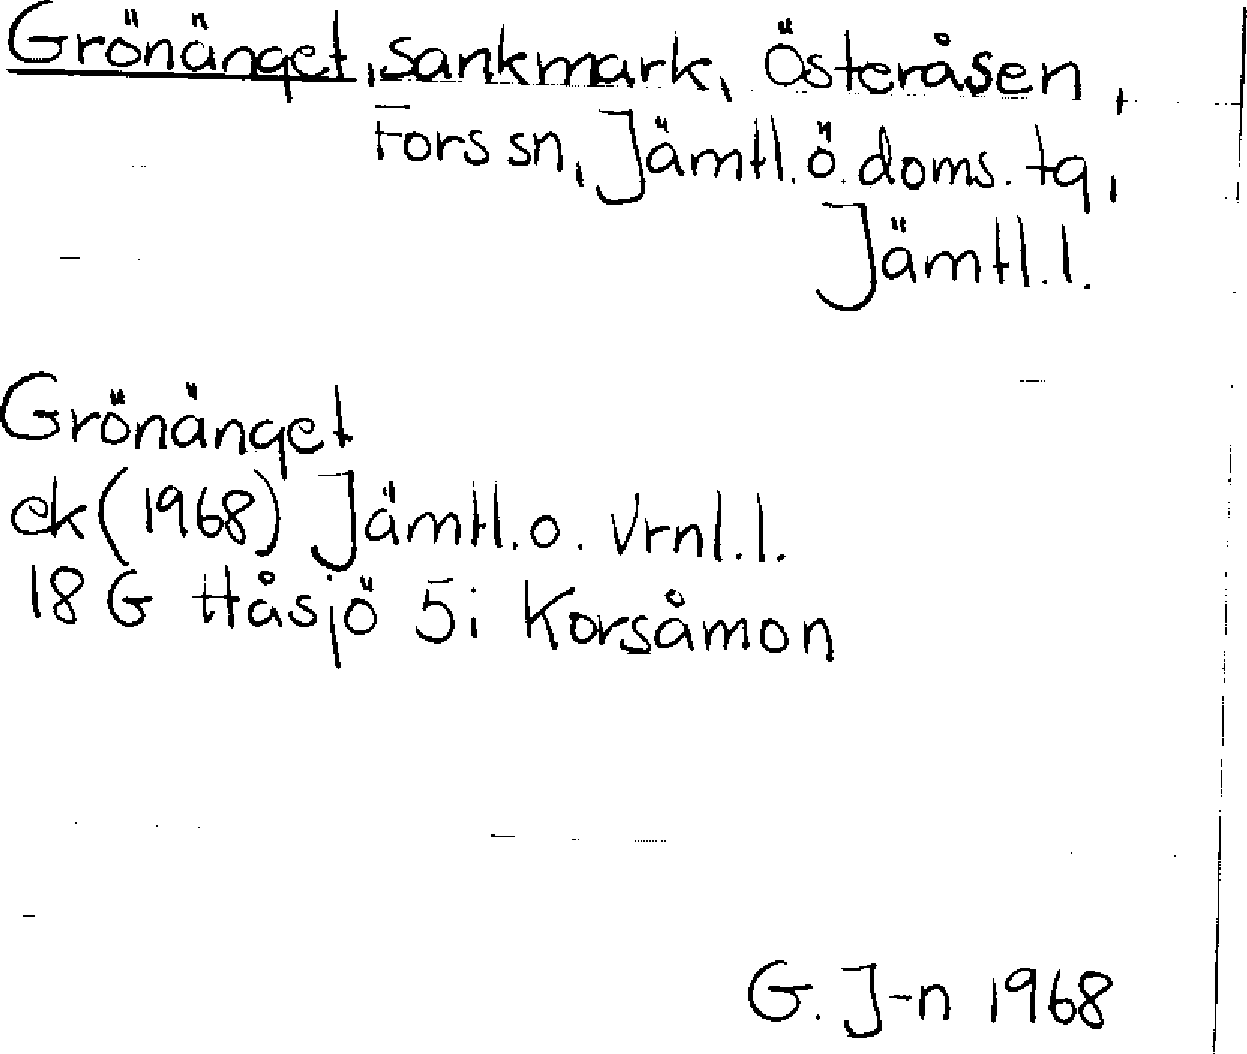 Grönänget, sankmark, Österåsen,
Fors sn, Jämtl. ö. doms. tg,
Jämtl. l.
Grönänget
ek (1968) Jämtl. o. Vrnl. l.
18 G Håsjö 5i Korsåmon
G. J-n 1968